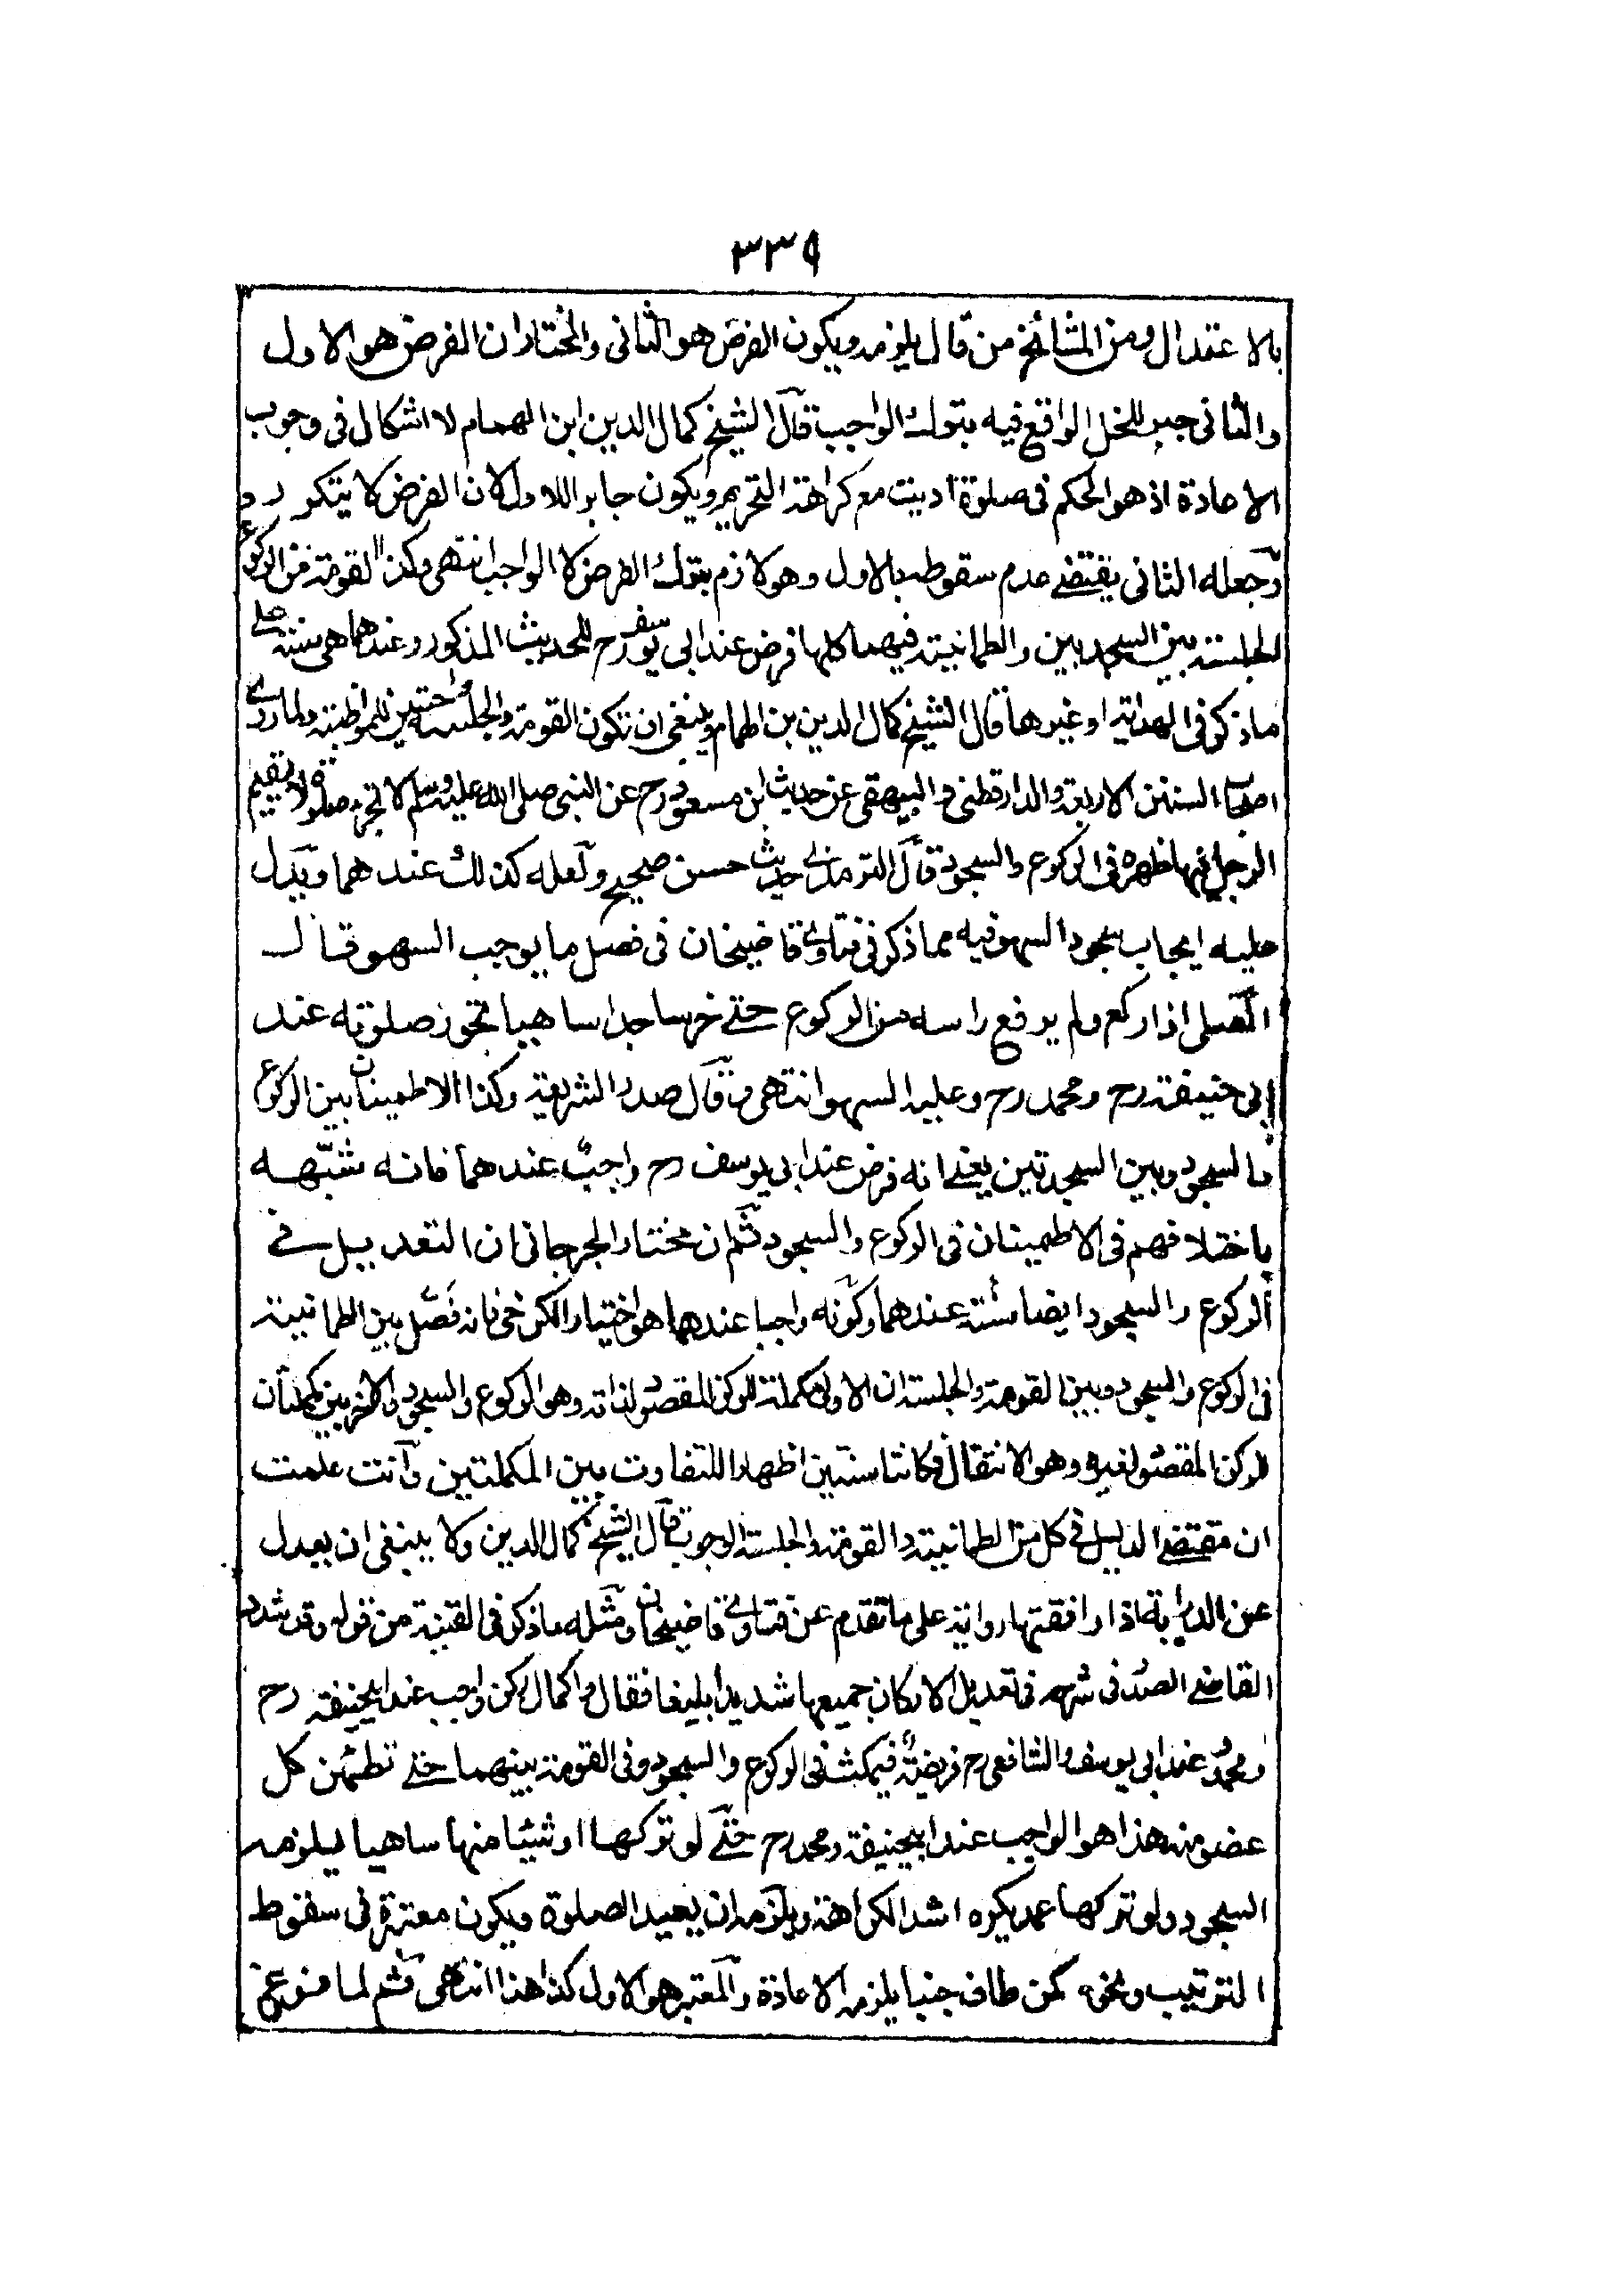 ٣٣٩
بالاعتدال ومن المشائخ من قال يلزمه ويكون الفرض هو الثاني والمختار ان الفرض هو الاول
والثاني جبر للخلل الواقع فيه بترك الواجب قال الشيخ كمال الدين ابن الهمام لا اشكال في وجوب
الاعادة اذ هو الحكم في صلوة اديت مع كراهة التحريم ويكون جابرا للاول لان الفرض لا يتكرر
وجعله الثاني يقتضى عدم سقوطه بالاول وهو لازم بترك الفرض لا الواجب انتهى وكذا القومة من الركوع
الجلسته بين السجدتين والطمانينة فيهما كلها فرض عند ابي يوسف رح للحديث المذكور وعندهما هى سنته على
ماذكر في الهداية او غيرها قال الشيخ كمال الدين بن الهمام وينبغى ان تكون القومة والجلسة واجبتين للمواظبة ولما روى
اصحاب السنن الاربعة والدارقطنى والبيهقى عن حديث ابن مسعود رح عن النبى صلى الله عليه وسلم لا تجزء صلوة لا يقيم
الرجل فيها ظهره في الركوع والسجود قال الترمذى حديث حسن صحيح ولعله كذلك عندهما ويدل
عليه ايجاب سجود السهو فيه مما ذكر في فتاوى قاضيخان في فصل ما يوجب السهو قال
المصلى اذا ركع ولم يرفع راسه من الركوع حتى خر ساجدا ساهيا تجوز صلوته عند
ابي حنيفة رح ومحمد رح وعليه السهو انتهى وقال صدر الشريعة وكذا الاطمينان بين الركوع
والسجود وبين السجدتين يعنى انه فرض عند ابي يوسف رح واجب عندهما فانه شبّهه
باختلافهم في الاطمينان في الركوع والسجود ثم ان مختار الجرجاني ان التعديل في
الركوع والسجود ايضا سنة عندهما وكونه واجبا عندهما هو اختيار الكرخى فانه فصّل بين الطمانينة
في الركوع والسجود وبين القومة والجلسته ان الاولى مكملة للركن المقصود لذاته وهو الركوع والسجود والاخريين مكملتان
للركن المقصود لغيره وهو الانتقال فكانتا سنتين اظهارا للتفاوت بين المكملتين وانت علمت
ان مقتضى الدليل في كل من الطمانينة والقومة والجلسته الوجوب قال الشيخ كمال الدين ولا ينبغى ان يعدل
عن الدراية اذا وافقتها رواية على ما تقدم عن فتاوى قاضيخان ومثله ماذكر في القنية من قوله وقد شدد
القاضى الصدر في شرحه في تعديل الاركان جميعها شديدا بليغا فقال واكمال ركن واجب عند ابيحنيفة رح
ومحمد وعند ابي يوسف والشافعى رح فريضة فيمكث في الركوع والسجود وفي القومة بينهما حتى تطمئن كل
عضو منه هذا هو الواجب عند ابيحنيفة ومحمد رح حتى لو تركها او شيئا منها ساهيا يلزمه
السجود ولو تركها عمد يكره اشد الكراهة ويلزمه ان يعيد الصلوة ويكون معتبرة في سقوط
الترتيب ونحوه كمن طاف جنبا يلزمه الاعادة والمعتبر هو الاول كذا هذا انتهى ثم لما فرغ عن